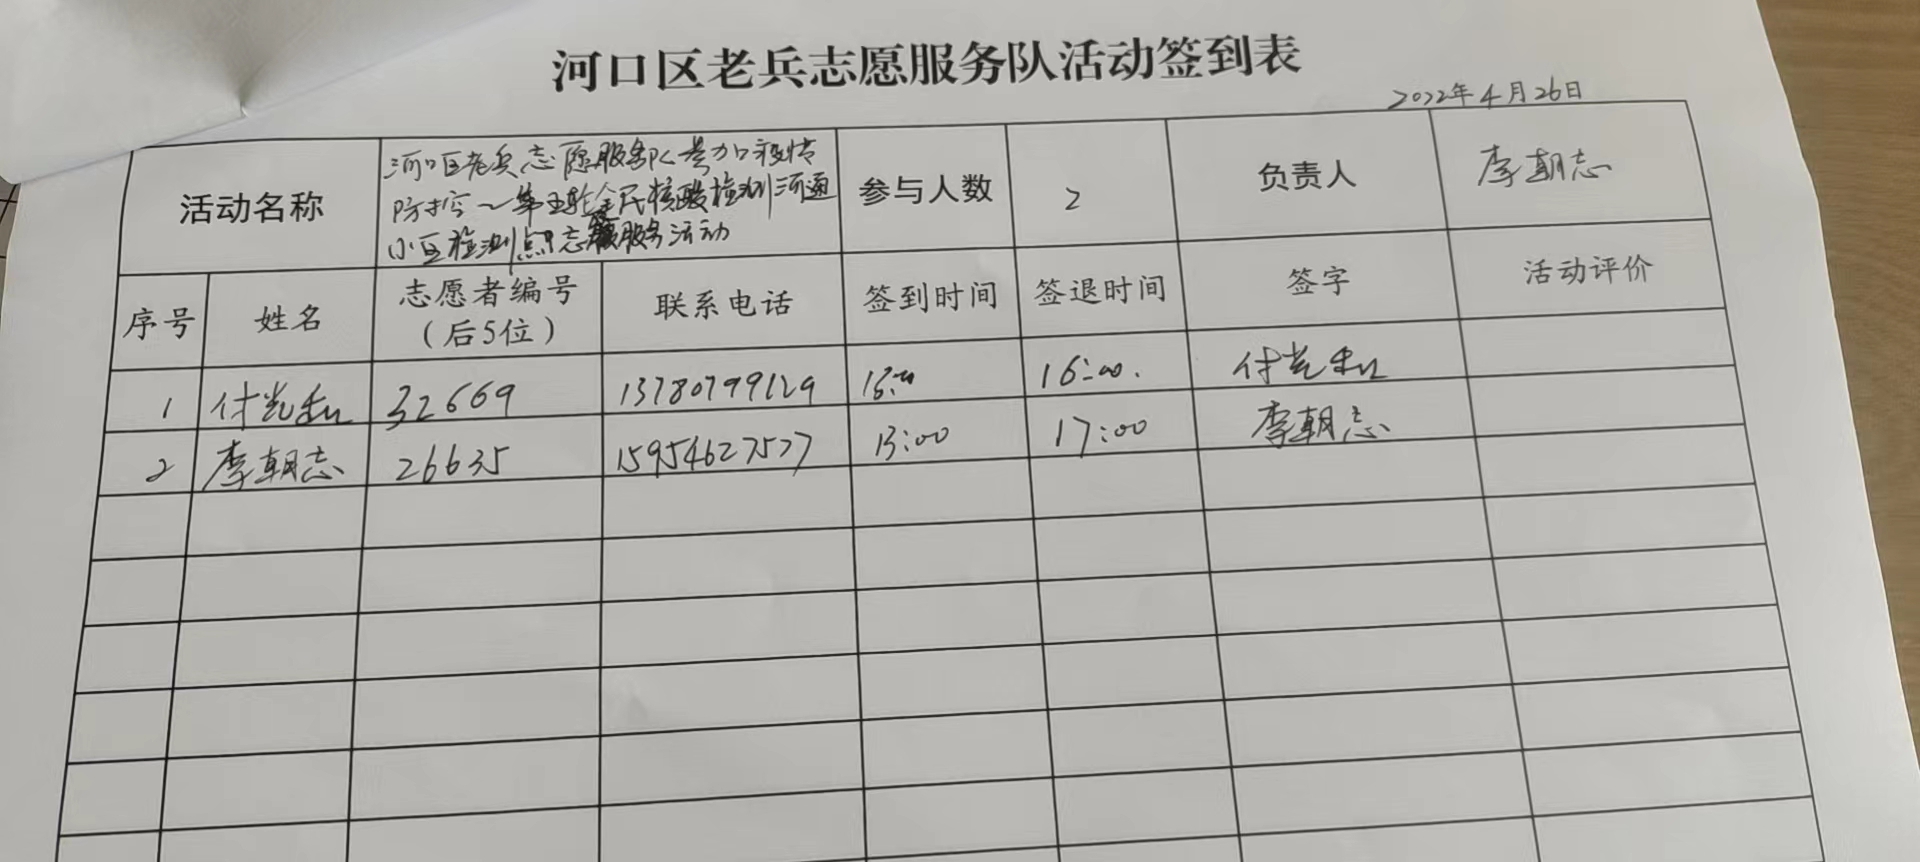 河口区老兵志愿服务队活动签到表
2022年4月26日
活动名称
河口区老兵志愿服务队参加疫情
防控~第五轮全民核酸检测河通
小区检测点志愿服务活动
参与人数
2
负责人
李朝志
序号
姓名
志愿者编号
（后5位）
联系电话
签到时间
签退时间
签字
活动评价
1 付光和 32669 13780799129 16:00 付光和
2 李朝志 26635 15954627577 13:00 17:00 李朝志